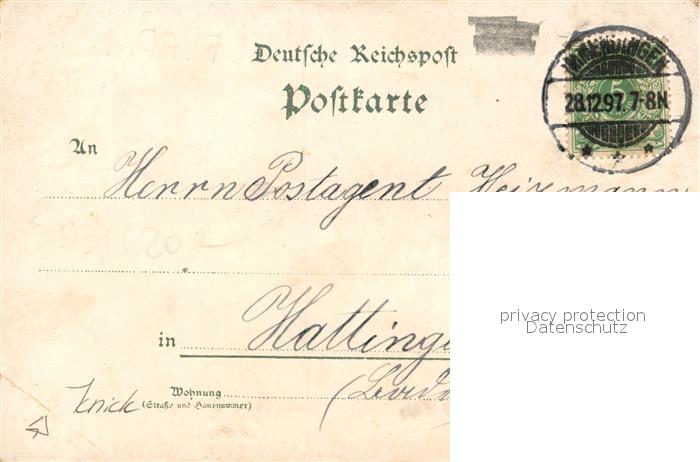 Deutsche Reichspost
Postkarte
IMMENDINGEN
28.12.97. 7-8N.
5
An Herrn Postagent Heizmann
privacy protection
Datenschutz
in Hattinge
Wohnung
(Straße und Hausnummer)
knick